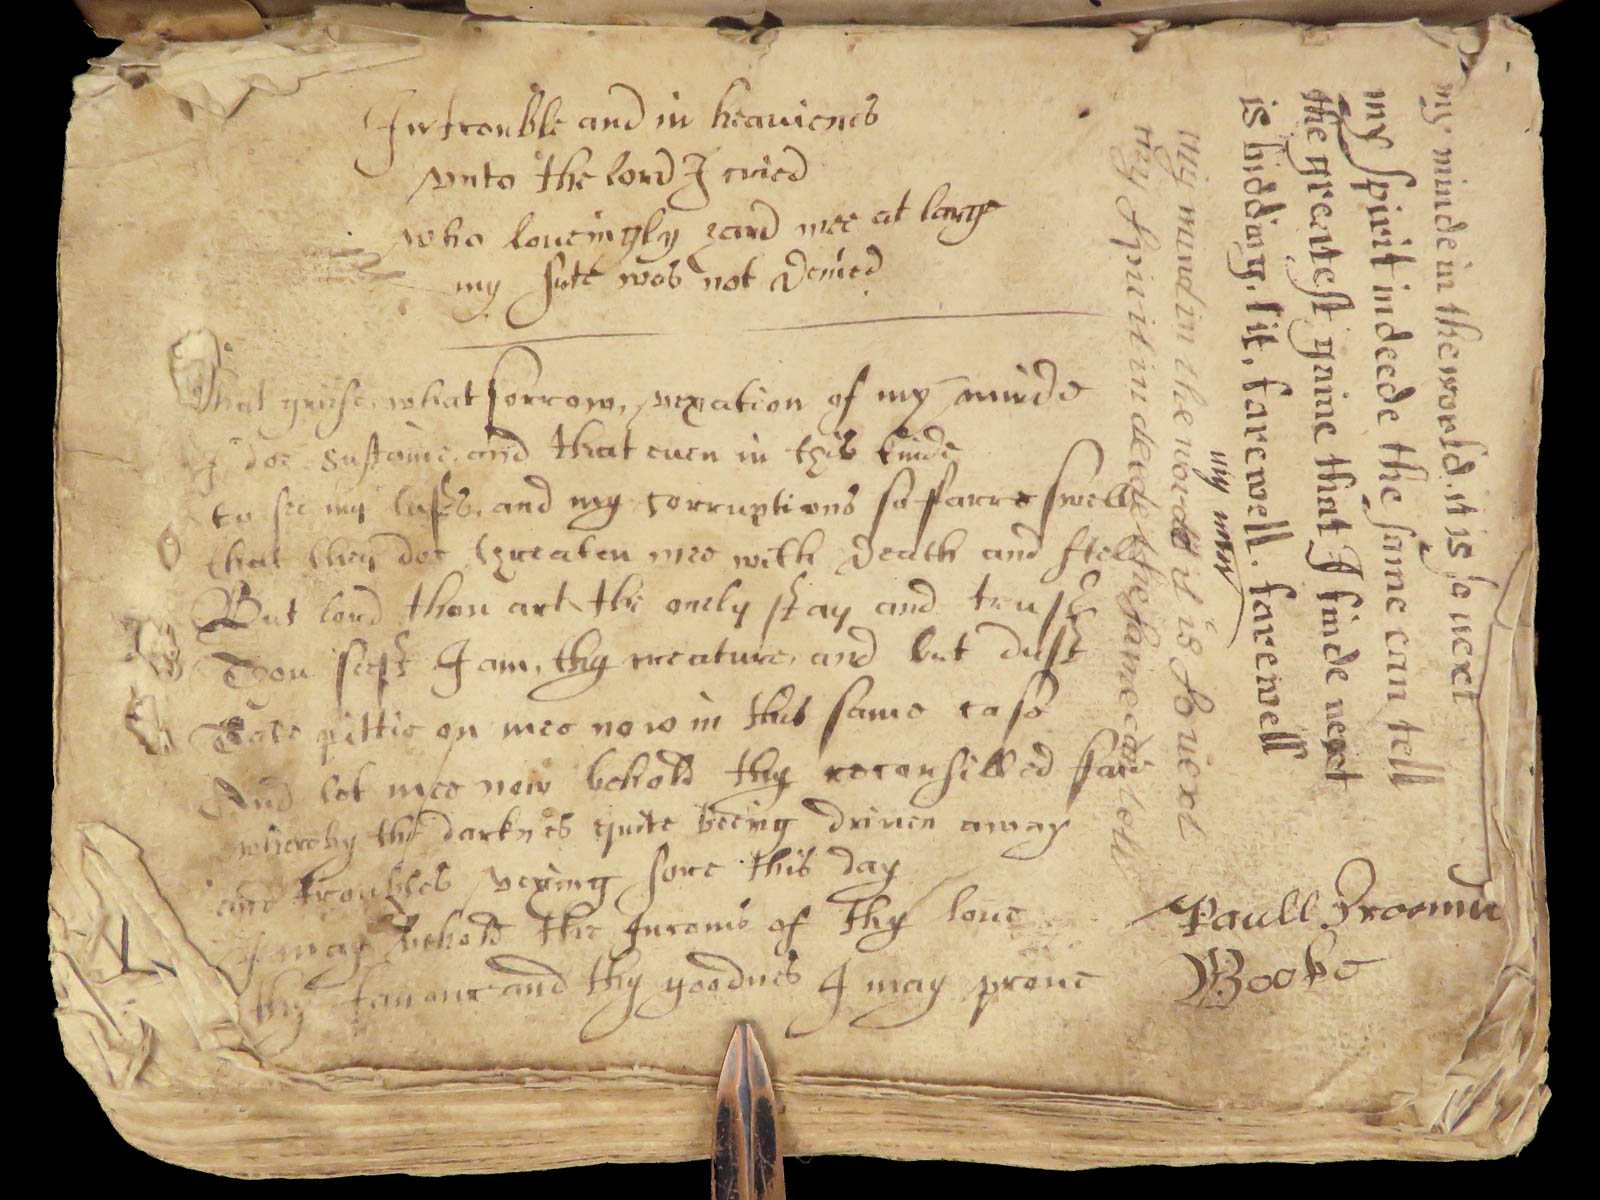 In trouble and in heauienes
vnto the lord I cried
who loueingly heard mee at large
my sute was not denied
What griefe, what sorrow, vexation of my minde
I doe sustaine, and that euen in this kinde
to see my lusts, and my corruptions so farre swell
that they doe threaten mee with death and Hell
O
But lord thou art the onely stay and trust
Thou seest I am, thy creature, and but dust
Take pittie on mee now in this same case
And let mee now behold thy reconsilled face
whereby the darknes quite beeing driuen away
and troubles vexing sore this day
I may behold the of thy loue
thy fauour and thy goodnes I may proue
my minde in the world, it is so vext
my spirit indeede the same can tell
the greatest gaine that I finde next
is bidding, it, farewell. farewell
my minn
my mind in the world it is so vext
my spirit in deede the same can tell
Paull
Booke